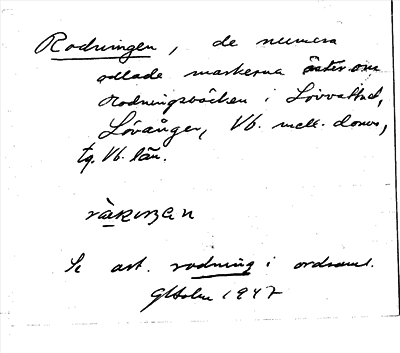 Rodningen, de numera
odlade markerna öster om
Rodningsbäcken i Lövvattnet,
Lövånger, Vb. mell. doms.,
tg. Vb. län.
Se art. rodning i ordsaml.
GHolm 1947